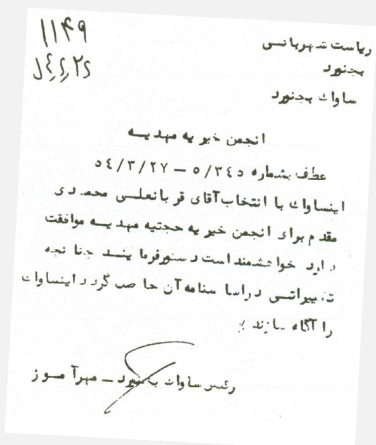 ۱۱۴۹
ریاست شهربانی
بجنورد
ساواک بجنورد
انجمن خیریه مهدیه
عطف بشماره ۵/۳٤٥ – ٥٤/۳/۲۷
اینساواک با انتخاب آقای قربانعلی محمدی
مقدم برای انجمن خیریه حجتیه مهدیه موافقت
دارد خواهشمند است دستور فرمایند چنانچه
تغییراتی در اساسنامه آن حاصل گردد اینساواک
را آگاه سازند
رئیس ساواک بجنورد – مهرآموز